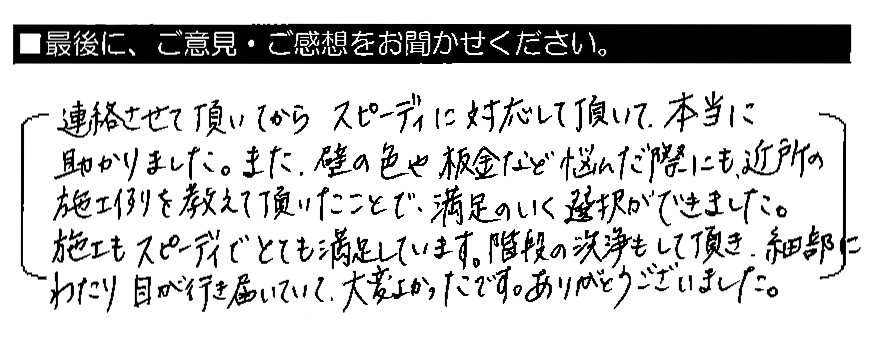 ■最後に、ご意見・ご感想をお聞かせください。
連絡させて頂いてから スピーディに対応して頂いて、本当に
助かりました。また、壁の色や板金など悩んだ際にも、近所の
施工例を教えて頂いたことで、満足のいく選択ができました。
施工もスピーディでとても満足しています。階段の洗浄もして頂き、細部に
わたり目が行き届いていて、大変よかったです。ありがとうございました。